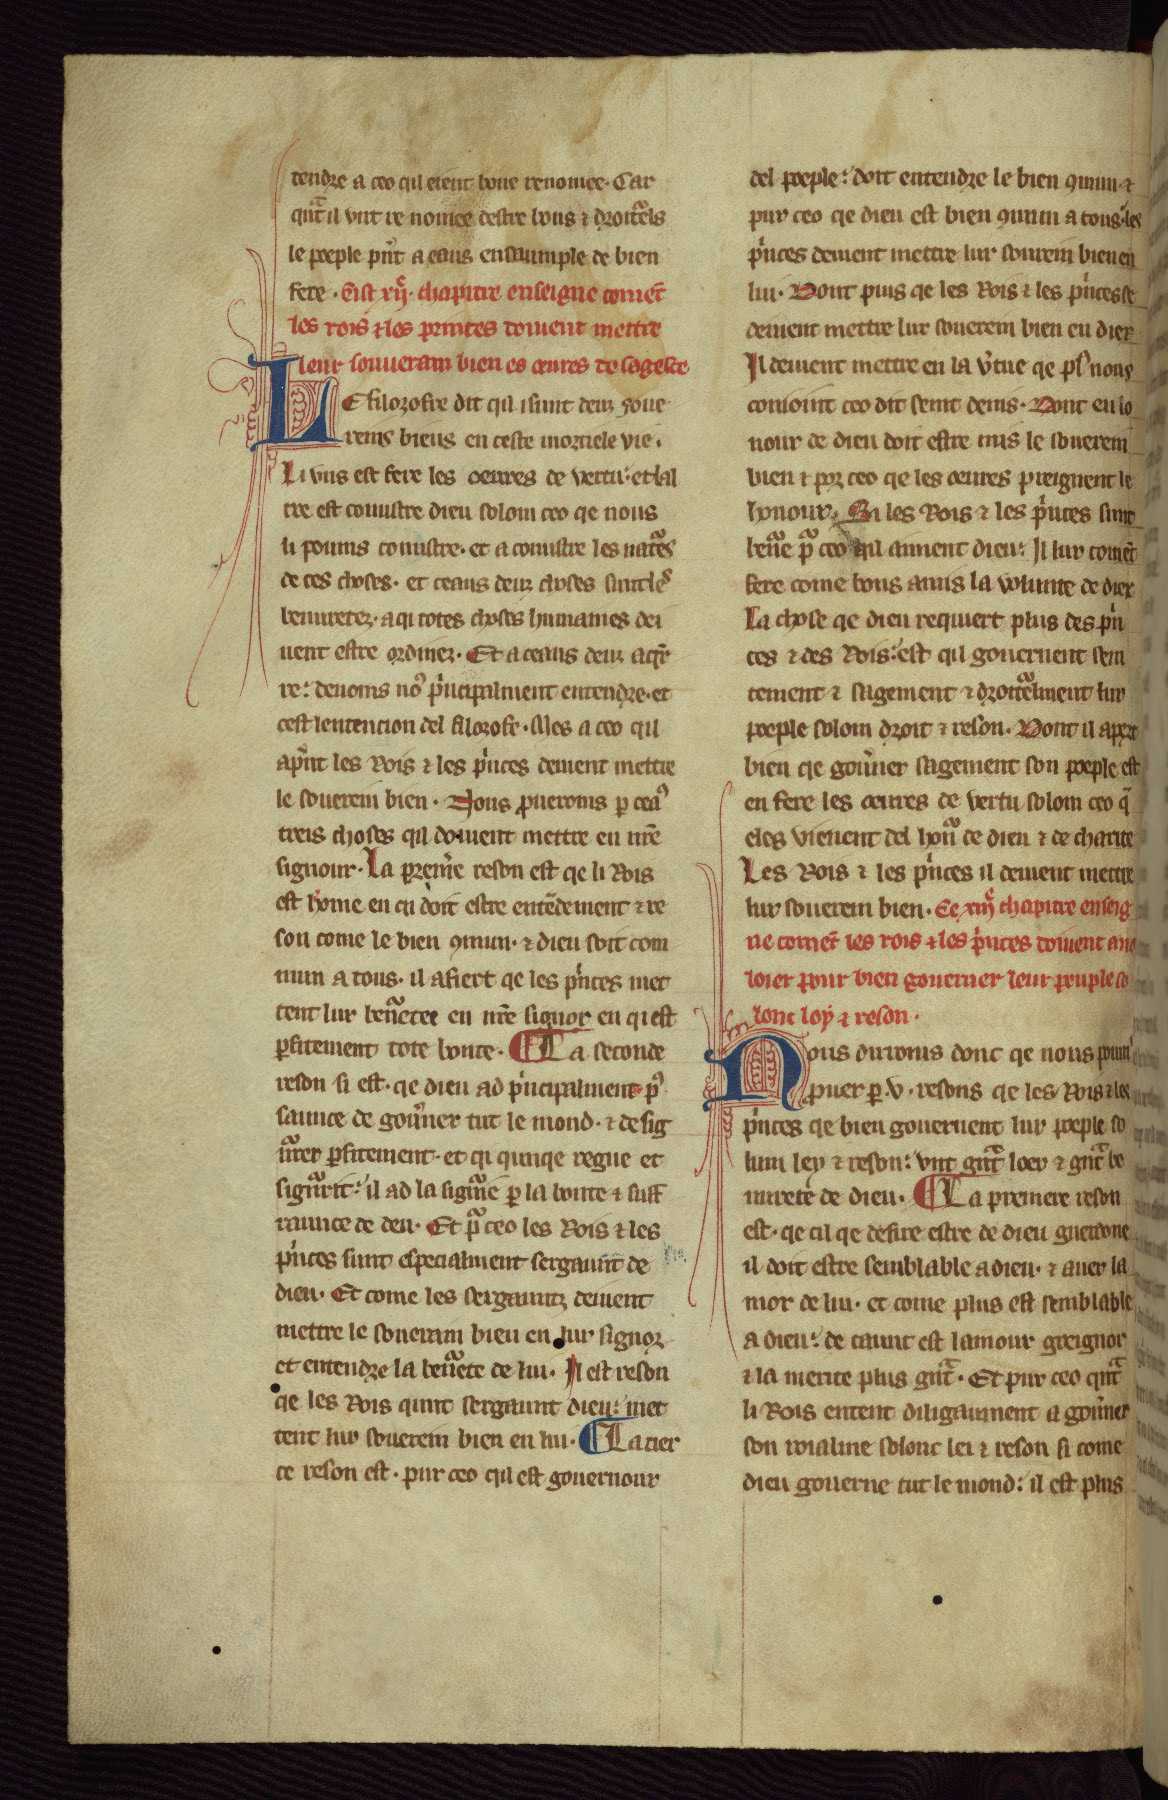 tendre a ceo qil eient bone renomee. Car
qu͛t il unt re nomee destre bons ⁊ droit͛els
le poeple pn͛t a eaus ensaumple de bien
fere. Cist xij. chapitre enseigne coment̄
les rois ⁊ les princes doiuent mettre
leur souuerain bien es oeures de sagesce
LE filozofre dit qil i sunt deuz soue
reins biens en ceste mortiele vie.
Li uns est fere les oeures de vertu: et lal
tre est conustre dieu solom ceo qe nous
li poums conustre. et a conustre les nat͛es
de ces choses. et ceaus deuz choses sunt les
beneuretez. a qi totes choses humaines dei
uent estre ordinez. Et a ceaus deuz aqr̄
re: deuoms noꝰ p͛ncipalment entendre. et
cest lentencion del filozofe. Mes a ceo qil
ap͛nt les Rois ⁊ les p͛nces deiuent mettre
le souerein bien. Nous ꝓueroms ꝑ ceaꝰ
treis choses qil doiuent mettre en nr̄e
signour. La prem͛e reson est qe li Rois
est home en cu doit estre entēdement ⁊ re
son come le bien ꝯmun. ⁊ dieu soit com
mun a tous. il afiert qe les p͛nces met
tent lur ben͛etee en nr̄e signor en qi est
ꝑfitement tote bonte. La seconde
reson si est. qe dieu ad p͛ncipalment pꝰ
saunce de gou͛ner tut le mond. ⁊ de sig
n͛rer ꝑfitement. et qi qunqe regne et
sign͛rit: il ad la sign͛ie ꝑ la bonte ⁊ suff
raunce de deu. Et p͛ ceo les Rois ⁊ les
p͛nces sunt especialment sergaunt de
dieu. Et come les sergauntz deiuent
mettre le souerain bien en lur signor
et entendre la ben͛ete de lui. Il est reson
qe les Rois qunt sergaunt dieu: met
tent lur souerein bien en lui. La tier
ce reson est. pur ceo qil est gouernour
del poeple: doit entendre le bien ꝯmun. ⁊
pur ceo qe dieu est bien ꝯmun a tous: les
p͛nces deiuent mettre lur souerein bien en
lui. Dont puis qe les Rois ⁊ les p͛nces se
deiuent mettre lur souerein bien en diex
Il deiuent mettre en la v͛tue qe plꝰ nous
conioint ceo dit seint denis. Dont en lo
nour de dieu doit estre mis le souerein
bien ⁊ por ceo qe les oeures preignent le
honour. Si les Rois ⁊ les p͛nces sunt
ben͛e p͛ ceo qil aiment dieu: Il lur coment̄
fere come bons amis la volunte de diex
La chose qe dieu requiert plus des p͛n
ces ⁊ des Rois: est qil gouernent sein
tement ⁊ sagement ⁊ droit͛elment lur
poeple solom droit ⁊ reson. Dont il apert
bien qe gou͛ner sagement son poeple est
en fere les oeures de vertu solom ceo q͛
eles vienent del hon͛ de dieu ⁊ de charite
Les Rois ⁊ les p͛nces il deiuent mettre
lur souerein bien. Ce xiij chapitre enseig
ne coment̄ les rois ⁊ les p͛nces doiuent
loier pour bien gouerner leur peuple so
lonc loy ⁊ reson.
Nous dirroms donc qe nous poum
ꝓuer ꝑ .v. resons qe les Rois ⁊ les
p͛nces qe bien gouernent lur poeple so
lum ley ⁊ reson: unt gn͛t loer ⁊ gn͛t be
nurete de dieu. La premere reson
est. qe cil qe desire estre de dieu guerdone
il doit estre semblable a dieu. ⁊ auer la
mor de lui. et come plus est semblable
a dieu: de taunt est lamour greignor
⁊ la merite plus gn͛t. Et pur ceo qn͛t
li Rois entent diligaument a gou͛ner
son roialme solonc lei ⁊ reson si come
dieu gouerne tut le mond: il est plus